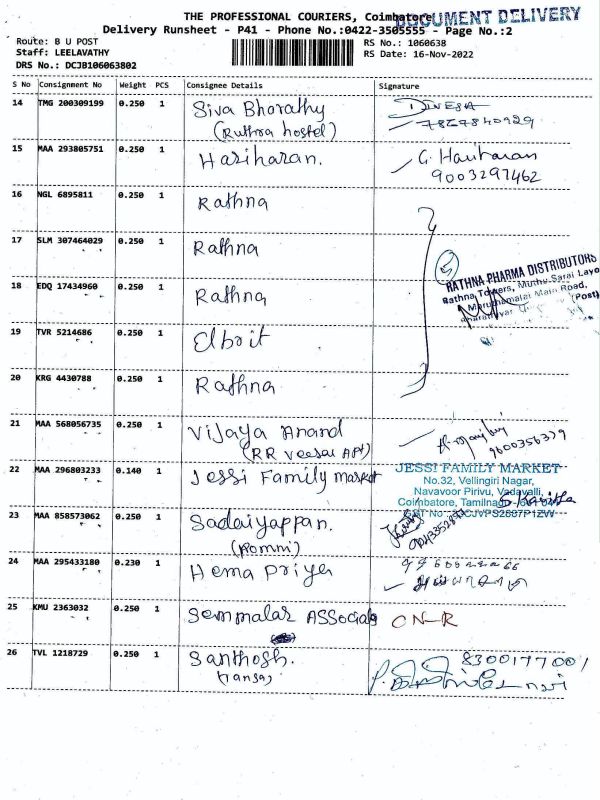 THE PROFESSIONAL COURIERS, Coimbatore
DOCUMENT DELIVERY
Delivery Runsheet - P41 - Phone No.:0422-3505555 - Page No.:2
Route: B U POST
RS No.: 1060638
Staff: LEELAVATHY
RS Date: 16-Nov-2022
DRS No.: DCJB106063802
S No Consignment No Weight PCS Consignee Details Signature
14 TMG 200309199 0.250 1 Siva Bharathy DINESH
(Ruthra hostel) 7867840929
15 MAA 293805751 0.250 1 Hariharan. G. Hariharan
9003297462
16 NGL 6895811 0.250 1 Rathna
17 SLM 307464029 0.250 1 Rathna
5
RATHNA PHARMA DISTRIBUTORS
Rathna Towers, Muthu Sarai Layo
Maruthamalai Main Road,
(Post)
18 EDQ 17434960 0.250 1 Rathna
19 TVR 5214686 0.250 1 Elbrit
20 KRG 4430788 0.250 1 Rathna
21 MAA 568056735 0.250 1 Vijaya Anand
(RR Veesai Apt) 9600356379
22 MAA 296803233 0.140 1 Jessi Family market JESSI FAMILY MARKET
No.32, Vellingiri Nagar,
Navavoor Pirivu, Vadavalli,
Coimbatore, Tamilnadu
S. Kavitha
23 MAA 858573062 0.250 1 Sadaiyappan.
(Pommi)
24 MAA 295433180 0.230 1 Hema Priya
25 KMU 2363032 0.250 1 Semmalar Associats ON-R
26 TVL 1218729 0.250 1 Santhosh. 8300177001
(Tansa)